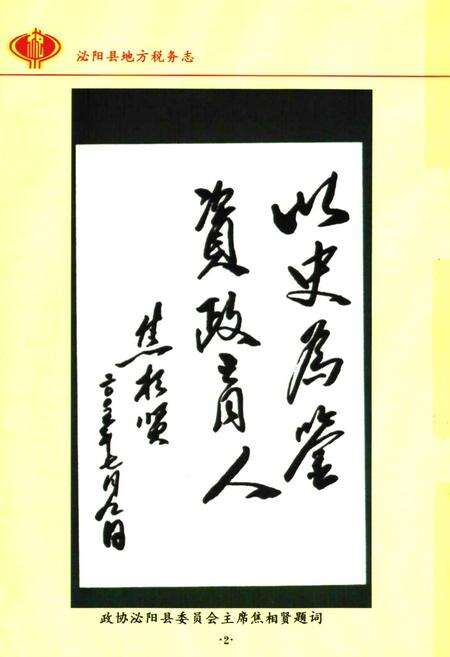 泌阳县地方税务志
以史为鉴
资政育人
焦相贤
二00五年七月九日
政协泌阳县委员会主席焦相贤题词
·2·